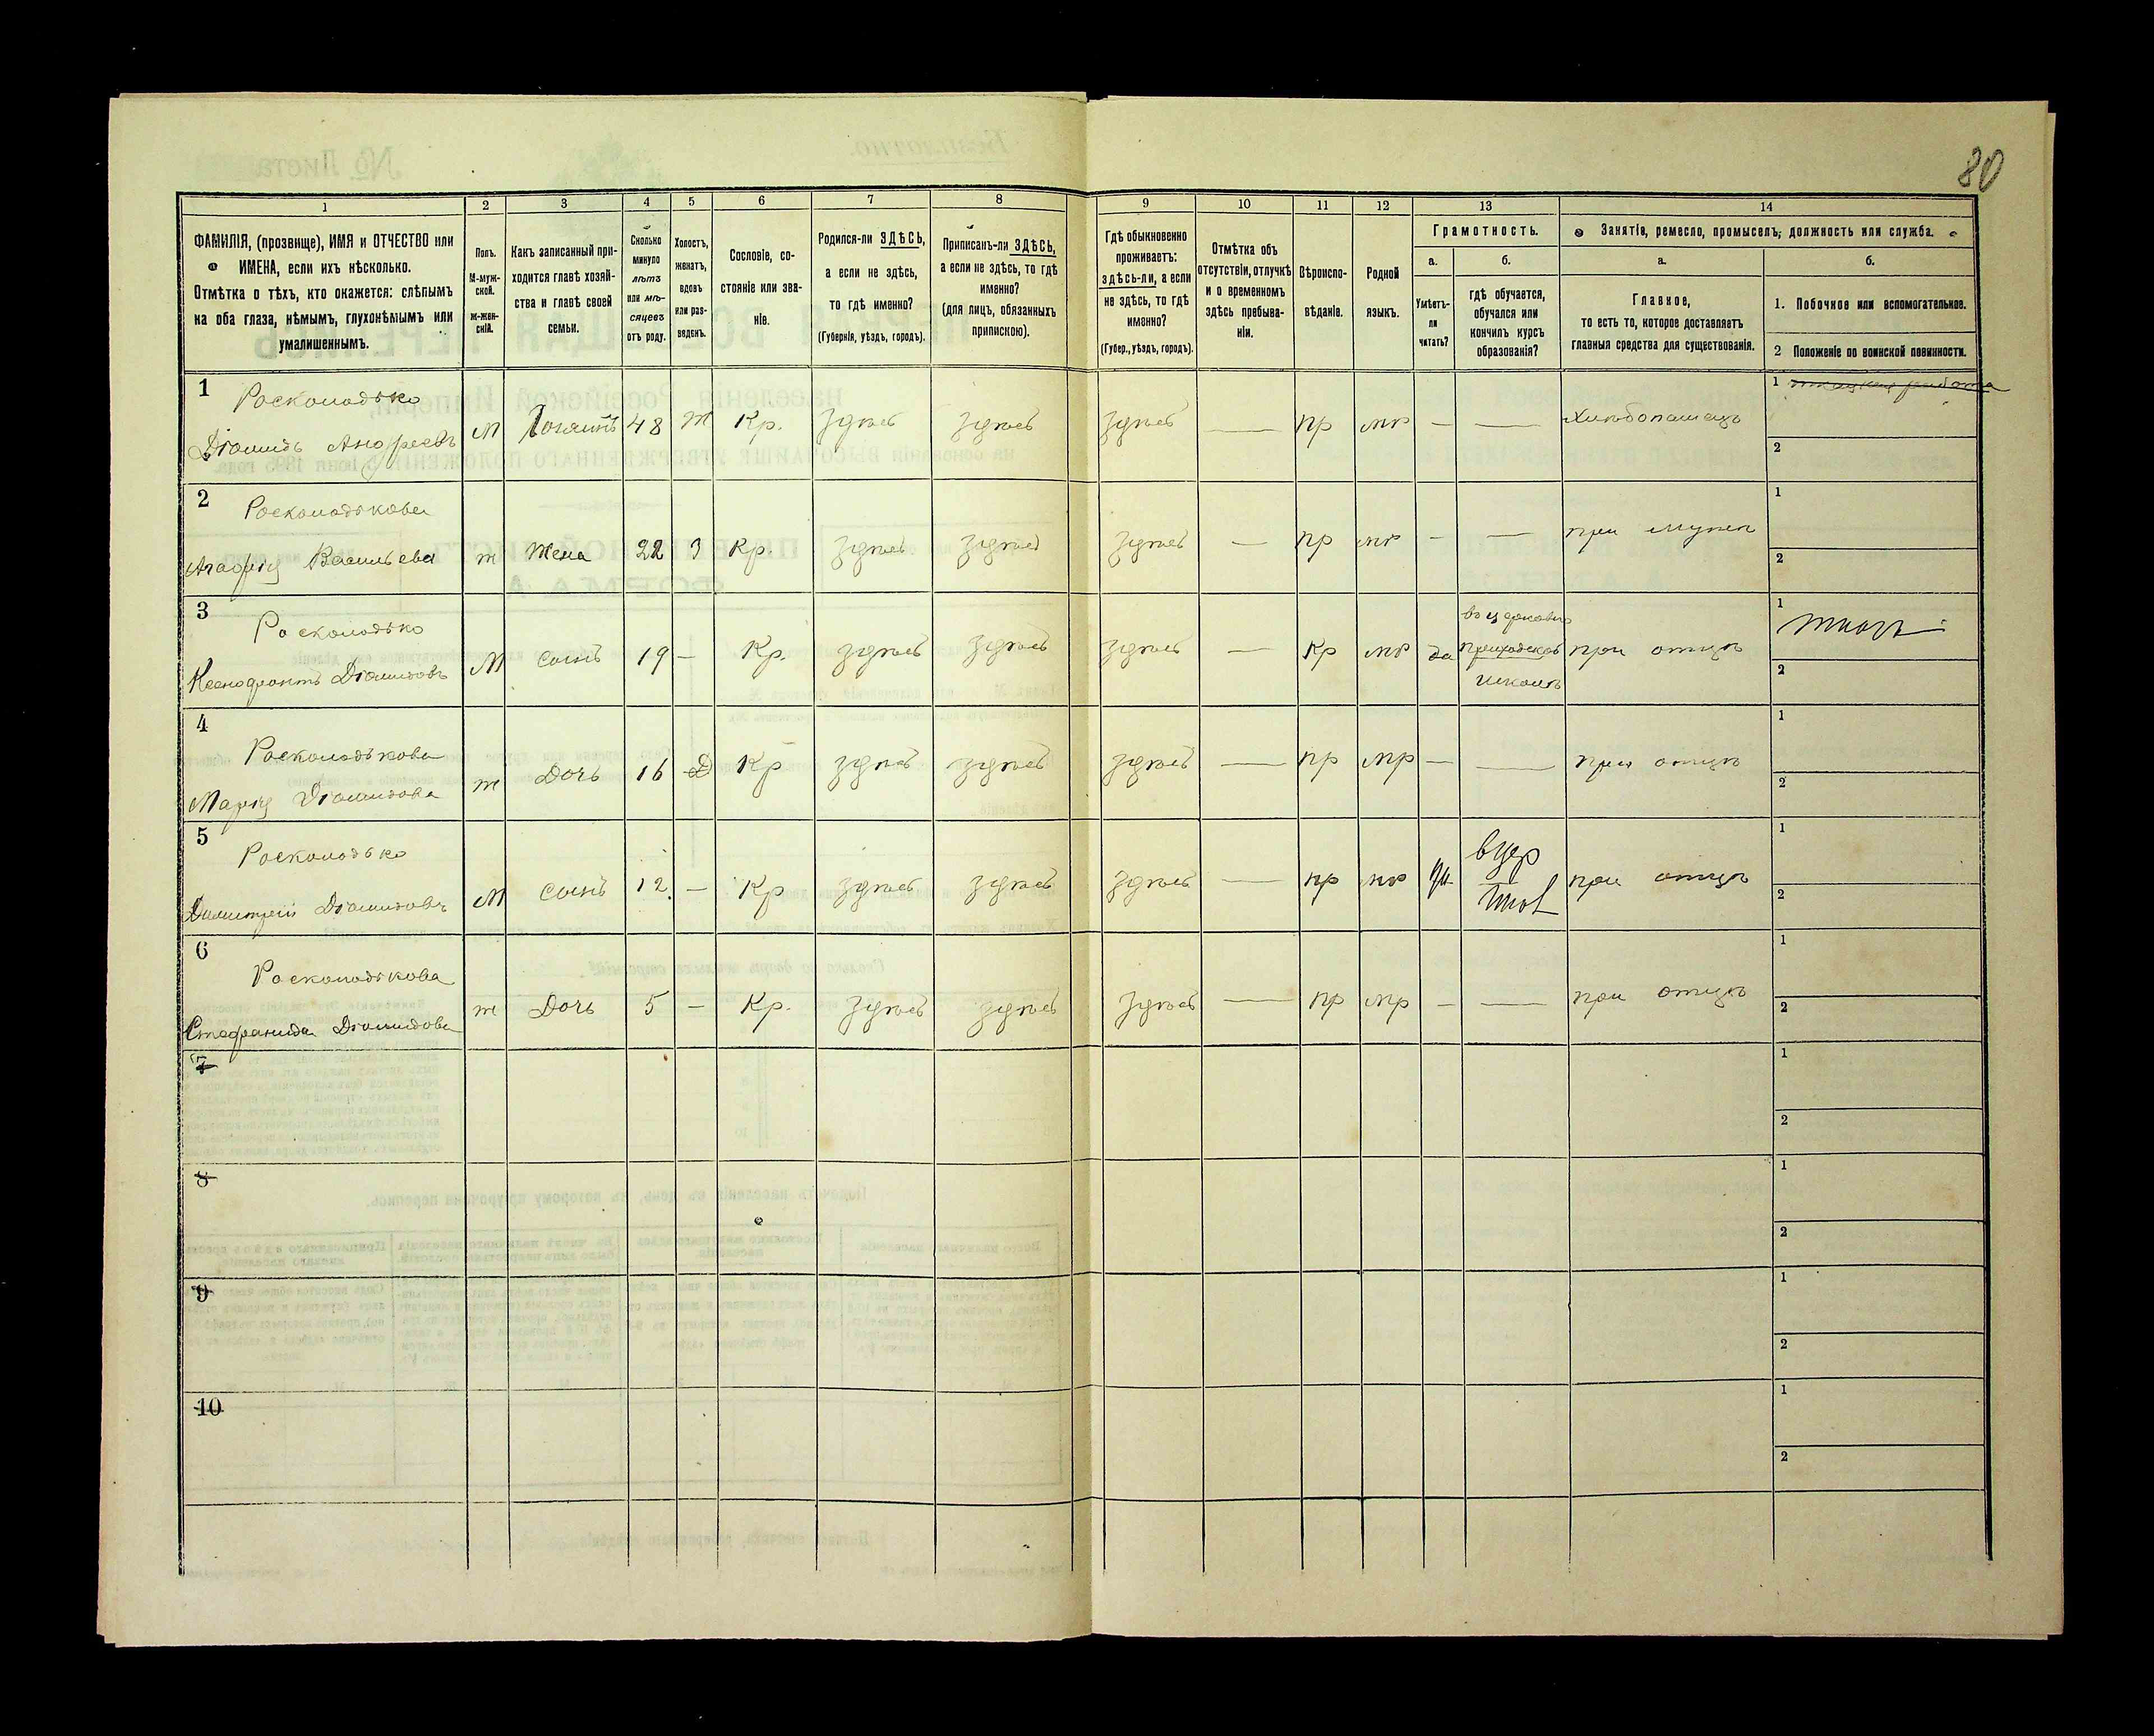 80
1
2
3
4
5
6
7
8
9
10
11
12
13
14
ФАМИЛІЯ, (прозвище), ИМЯ и ОТЧЕСТВО или
ИМЕНА, если ихъ нѣсколько.
Отмѣтка о тѣхъ, кто окажется: слѣпымъ
на оба глаза, нѣмымъ, глухонѣмымъ или
умалишеннымъ.
Полъ.
М-муж-
ской.
ж-жен-
скій.
Какъ записанный при-
ходится главѣ хозяй-
ства и главѣ своей
семьи.
Сколько
минуло
лѣтъ
или мѣ-
сяцевъ
отъ роду.
Холостъ,
женатъ,
вдовъ
или раз-
веденъ.
Сословіе, со-
стояніе или зва-
ніе.
Родился-ли ЗДѢСЬ,
а если не здѣсь,
то гдѣ именно?
(Губернія, уѣздъ, городъ).
Приписанъ-ли ЗДѢСЬ,
а если не здѣсь, то гдѣ
именно?
(для лицъ, обязанныхъ
припискою).
Гдѣ обыкновенно
проживаетъ:
здѣсь-ли, а если
не здѣсь, то гдѣ
именно?
(Губер., уѣздъ, городъ).
Отмѣтка объ
отсутствіи, отлучкѣ
и о временномъ
здѣсь пребыва-
ніи.
Вѣроиспо-
вѣданіе.
Родной
языкъ.
Грамотность.
а.
Умѣетъ-
ли
читать?
б.
гдѣ обучается,
обучался или
кончилъ курсъ
образованія?
Занятіе, ремесло, промыселъ, должность или служба.
а.
Главное,
то есть то, которое доставляетъ
главныя средства для существованія.
б.
1. Побочное или вспомогательное.
2 Положеніе по воинской повинности.
1
Росколодько
Діомидъ Андреевъ
М
Хозяинъ
48
Ж
Кр.
Здѣсь
Здѣсь
Здѣсь
—
пр
мр
—
—
Хлѣбопашецъ
1
2
2
Росколодькова
Агафія Васильева
ж
Жена
22
З
Кр.
Здѣсь
Здѣсь
Здѣсь
—
пр
мр
—
—
при мужѣ
1
2
3
Росколодько
Ксенофонтъ Діомидовъ
М
сынъ
19
—
Кр.
здѣсь
здѣсь
здѣсь
—
Кр
мр
да
въ церковно
приходской
школѣ
при отцѣ
1
ткачъ
2
4
Росколодькова
Марія Діомидова
ж
Дочь
16
Д
Кр
здѣсь
здѣсь
здѣсь
—
пр
мр
—
—
при отцѣ
1
2
5
Росколодько
Димитрій Діомидовъ
М
сынъ
12
—
Кр
здѣсь
здѣсь
здѣсь
—
пр
мр
да
вцер
шкод
при отцѣ
1
2
6
Росколодькова
Стефанида Діомидова
ж
Дочь
5
—
Кр.
здѣсь
здѣсь
здѣсь
—
пр
мр
—
—
при отцѣ
1
2
7
1
2
8
1
2
9
1
2
10
1
2